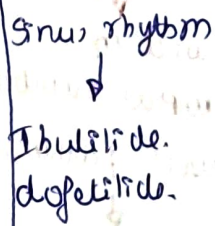 Sinus rhythm
Ibutilide.
dofetilide.